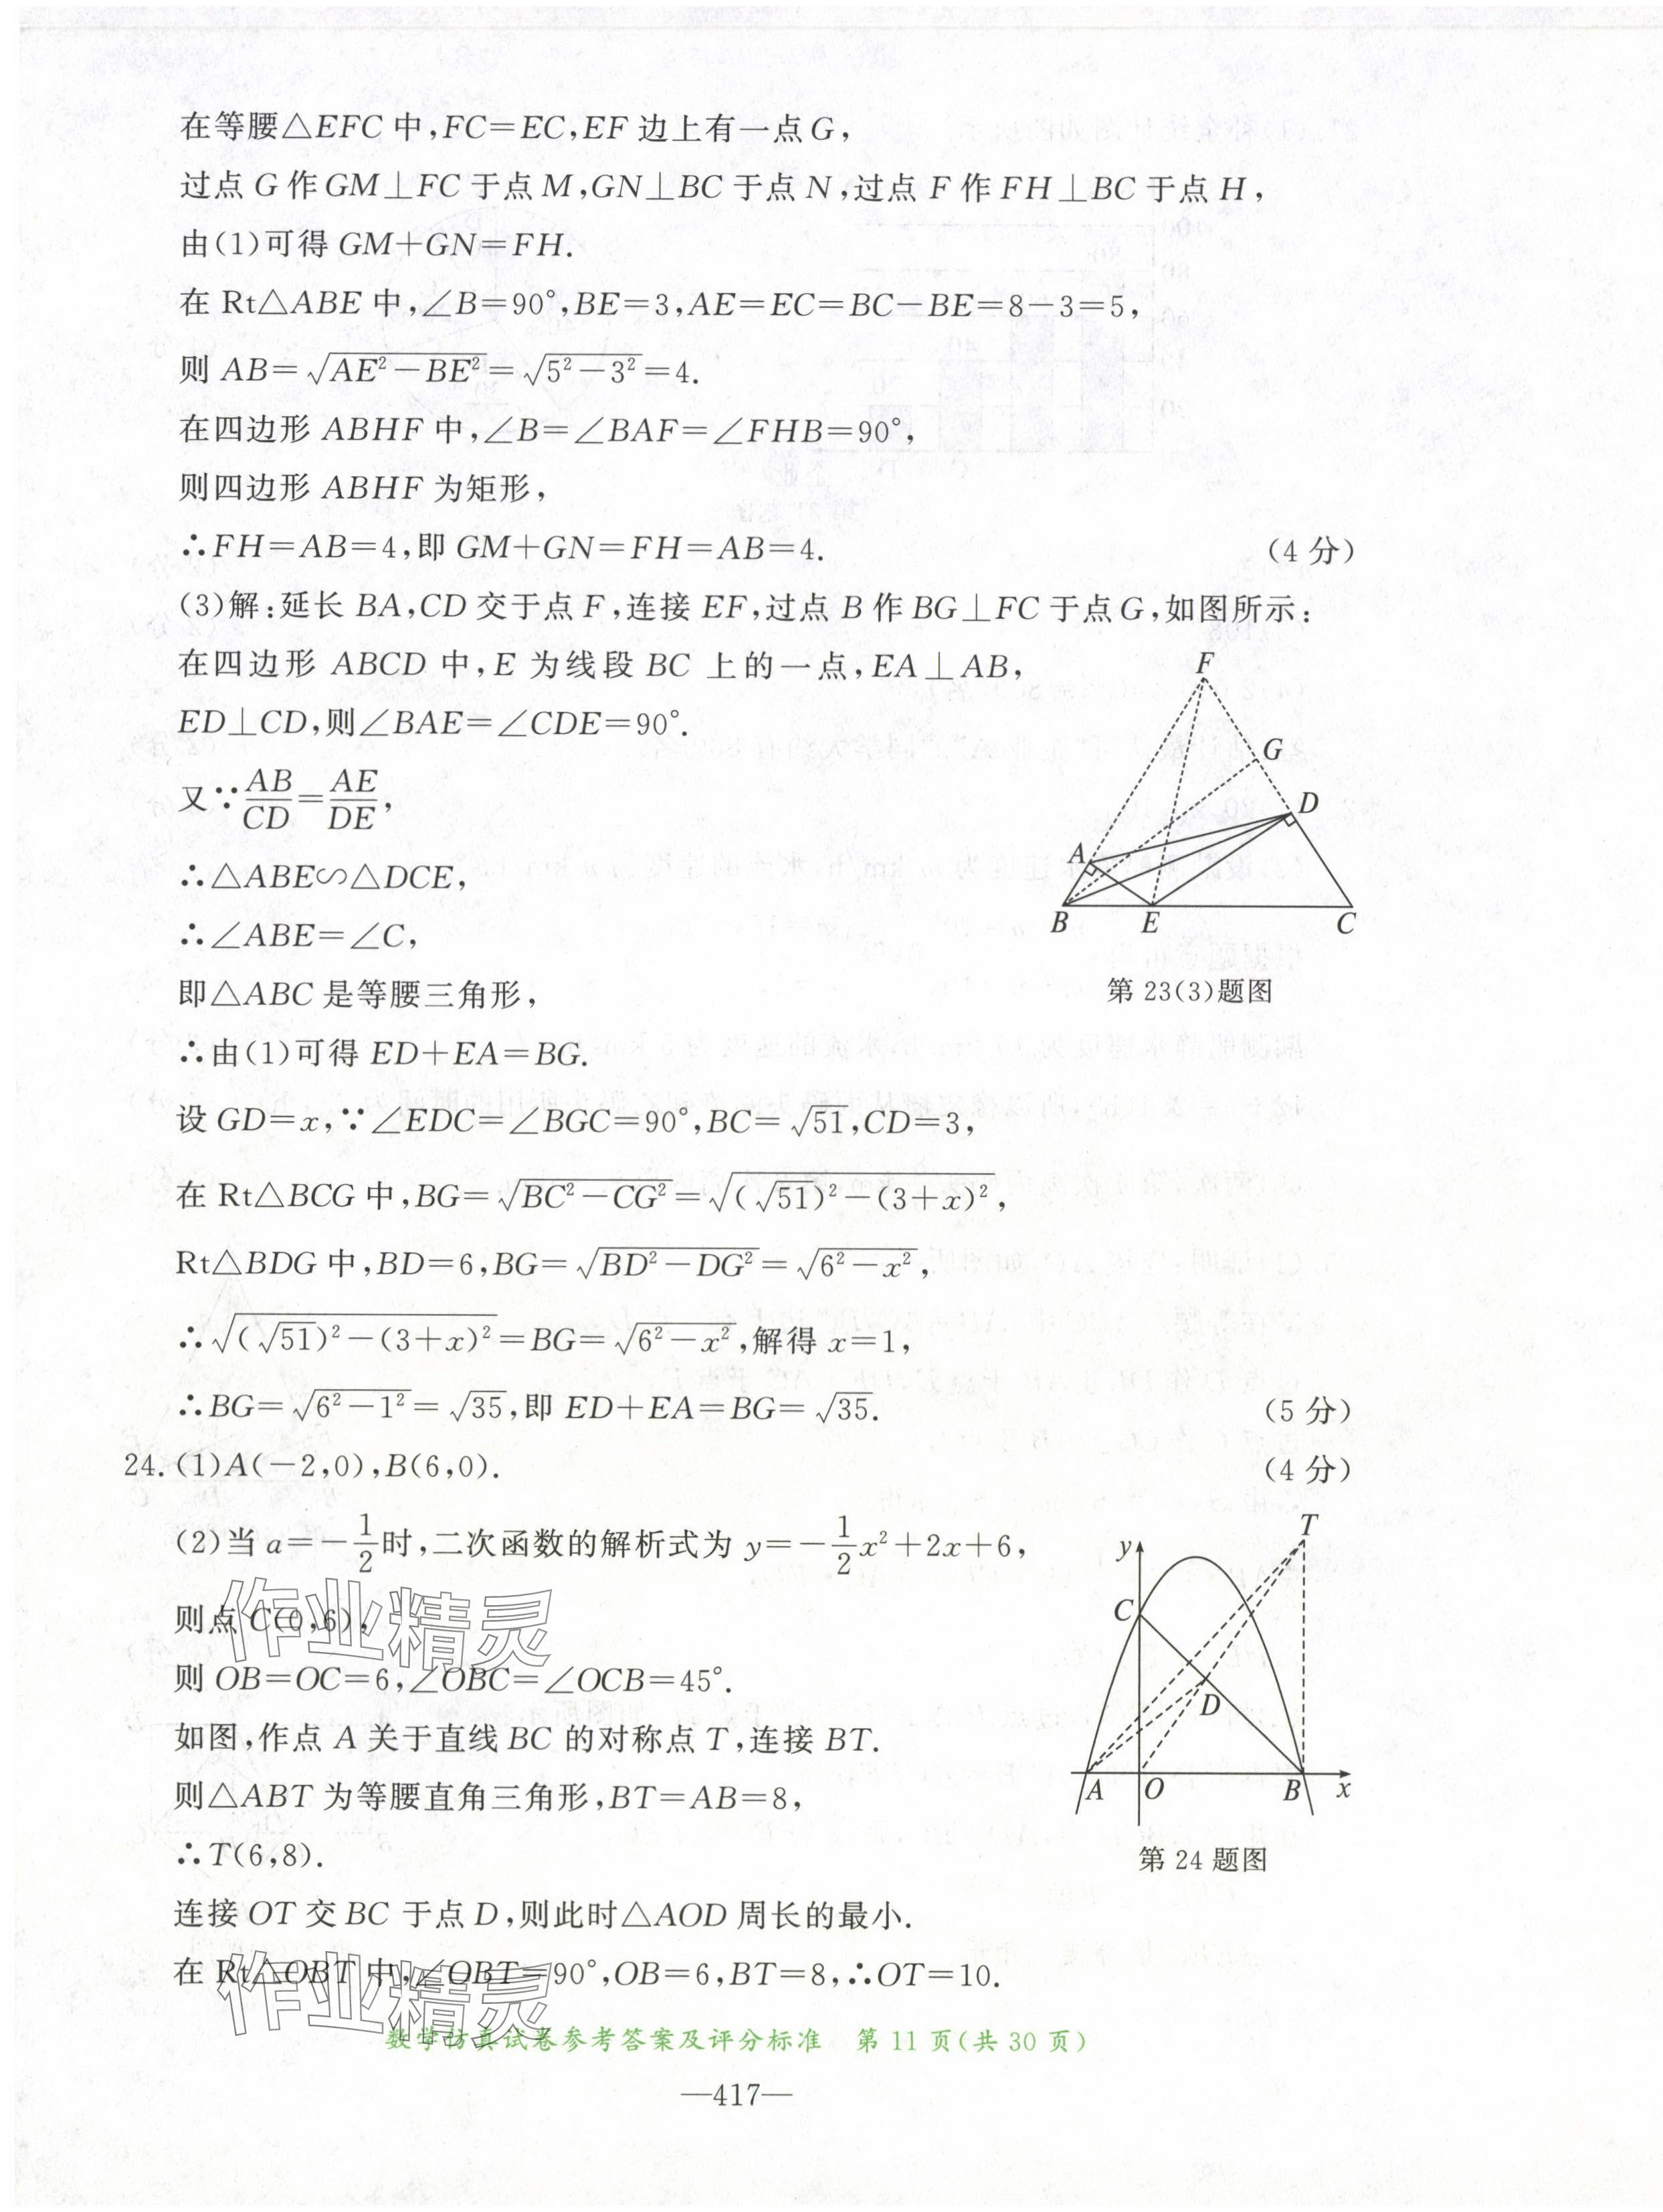 在等腰△EFC中,FC=EC,EF边上有一点G,
过点G作GM⊥FC于点M,GN⊥BC于点N,过点F作FH⊥BC于点H,
由(1)可得GM+GN=FH.
在Rt△ABE中,∠B=90°,BE=3,AE=EC=BC-BE=8-3=5,
则AB=√(AE²-BE²)=√(5²-3²)=4.
在四边形ABHF中,∠B=∠BAF=∠FHB=90°,
则四边形ABHF为矩形,
∴FH=AB=4,即GM+GN=FH=AB=4. (4分)
(3)解:延长BA,CD交于点F,连接EF,过点B作BG⊥FC于点G,如图所示:
在四边形ABCD中,E为线段BC上的一点,EA⊥AB,
ED⊥CD,则∠BAE=∠CDE=90°.
又∵AB/CD=AE/DE,
∴△ABE∽△DCE,
∴∠ABE=∠C,
即△ABC是等腰三角形,
∴由(1)可得ED+EA=BG.
F
G
D
A
B
E
C
第23(3)题图
设GD=x,∵∠EDC=∠BGC=90°,BC=√51,CD=3,
在Rt△BCG中,BG=√(BC²-CG²)=√((√51)²-(3+x)²),
Rt△BDG中,BD=6,BG=√(BD²-DG²)=√(6²-x²),
∴√((√51)²-(3+x)²)=BG=√(6²-x²),解得x=1,
∴BG=√(6²-1²)=√35,即ED+EA=BG=√35. (5分)
24.(1)A(-2,0),B(6,0). (4分)
(2)当a=-1/2时,二次函数的解析式为y=-1/2x²+2x+6,
则点C(0,6),
则OB=OC=6,∠OBC=∠OCB=45°.
如图,作点A关于直线BC的对称点T,连接BT.
则△ABT为等腰直角三角形,BT=AB=8,
∴T(6,8).
连接OT交BC于点D,则此时△AOD周长的最小.
在Rt△OBT中,∠OBT=90°,OB=6,BT=8,∴OT=10.
T
y
C
D
A
O
B
x
第24题图
作业精灵
作业精灵
数学仿真试卷参考答案及评分标准 第11页(共30页)
—417—